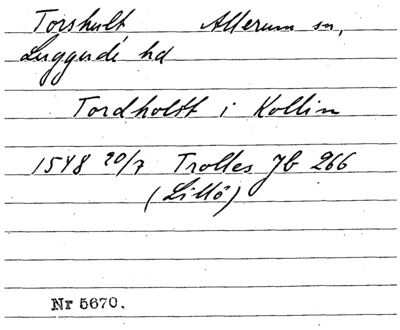 Torshult, Allerum sn,
Luggude hd
Tordholtt i Kollin
1548 20/7 Trolles Jb 266
(Lillö)
Nr 5670.